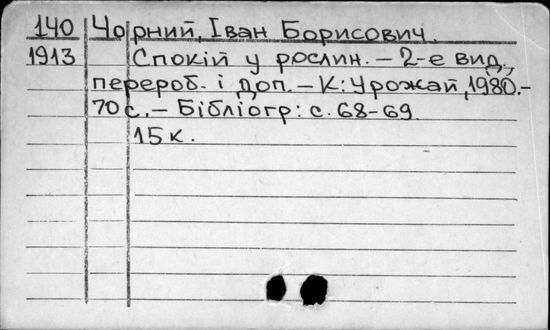 140 Чорний, Іван Борисович.
1913 Спокій у рослин. – 2-е вид.,
перероб. і доп. – К: Урожай, 1980. –
70 с. – Бібліогр: с. 68-69.
15 к.